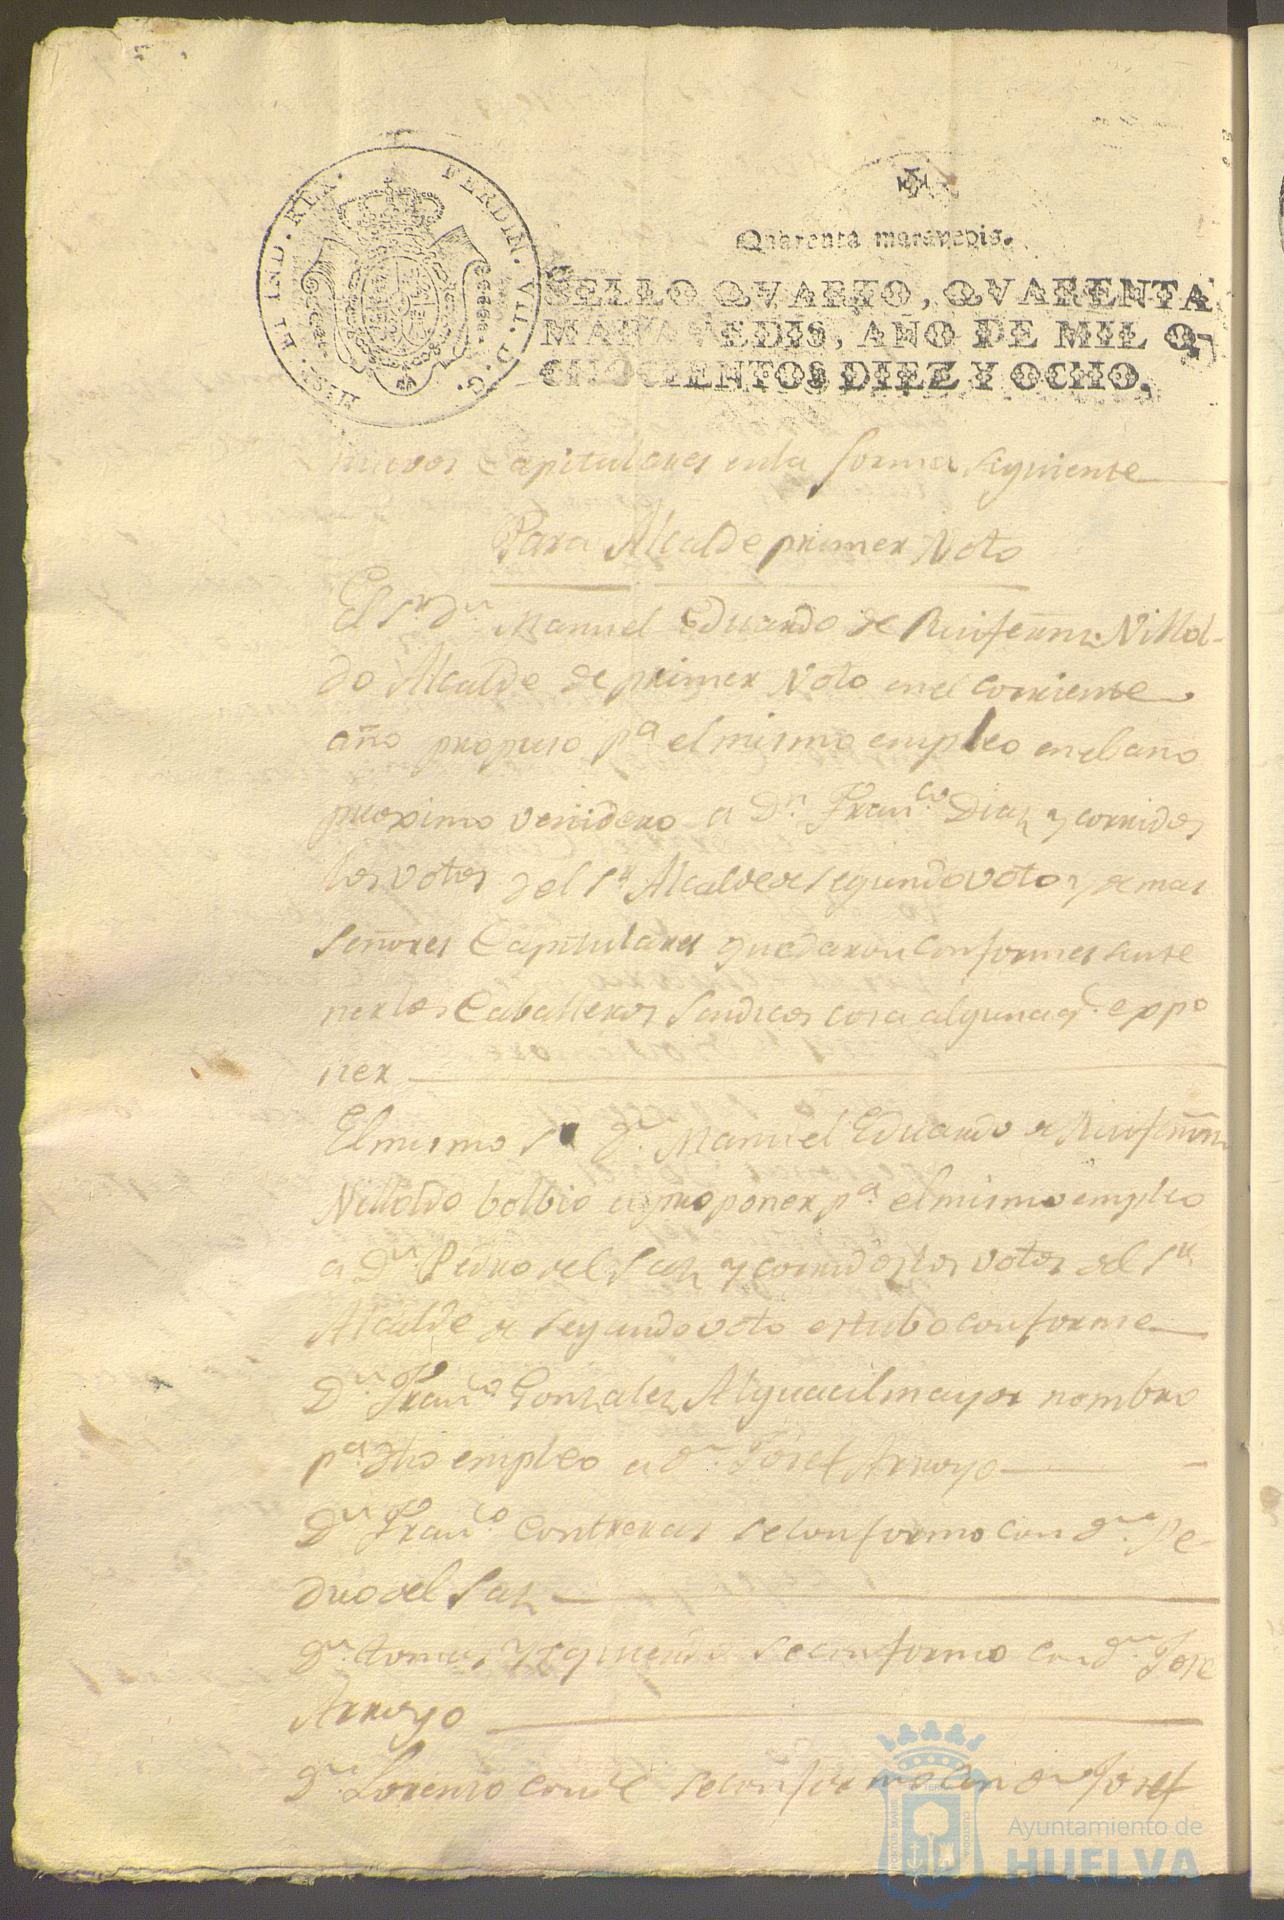 HISP. ET IND. REX. FERDIN. VII. D. G.
Quarenta maravedis.
SELLO QVARTO, QVARENTA
MARAVEDIS, AÑO DE MIL O
CHOCIENTOS DIEZ Y OCHO,
nuevos Capitulares enla forma siguiente
Para Alcalde primer Voto
El Sr. Dn. Manuel Eduardo de Villal-
do Alcalde de primer Voto en el corriente
año propuso pa. el mismo empleo en el año
proximo venidero a Dn. Franco. Diaz y corridos
los votos del Sr. Alcalde de segundo voto y demas
Señores Capitulares quedaron conformes sinte
ner los Caballeros Sindicos cosa alguna q.e oppo
ner
El mismo Sr. Dn. Manuel Eduardo de
Villaldo bolbio a proponer pa. el mismo empleo
a Dn. Pedro del Saz y corridos los votos del Sr.
Alcalde de segundo voto estubo conforme
Dn. Franco. Gonzalez Alguacil mayor nombro
pa. dho empleo a Dn. Josef Arroyo
Dn. Franco. Contreras se conformo con Dn. Pe-
dro del Saz
Dn. Tomas Yzquierdo se conformo con Dn. Jose
Arroyo
Dn. Lorenzo Conde se conformo con Dn. Josef
Ayuntamiento de
HUELVA